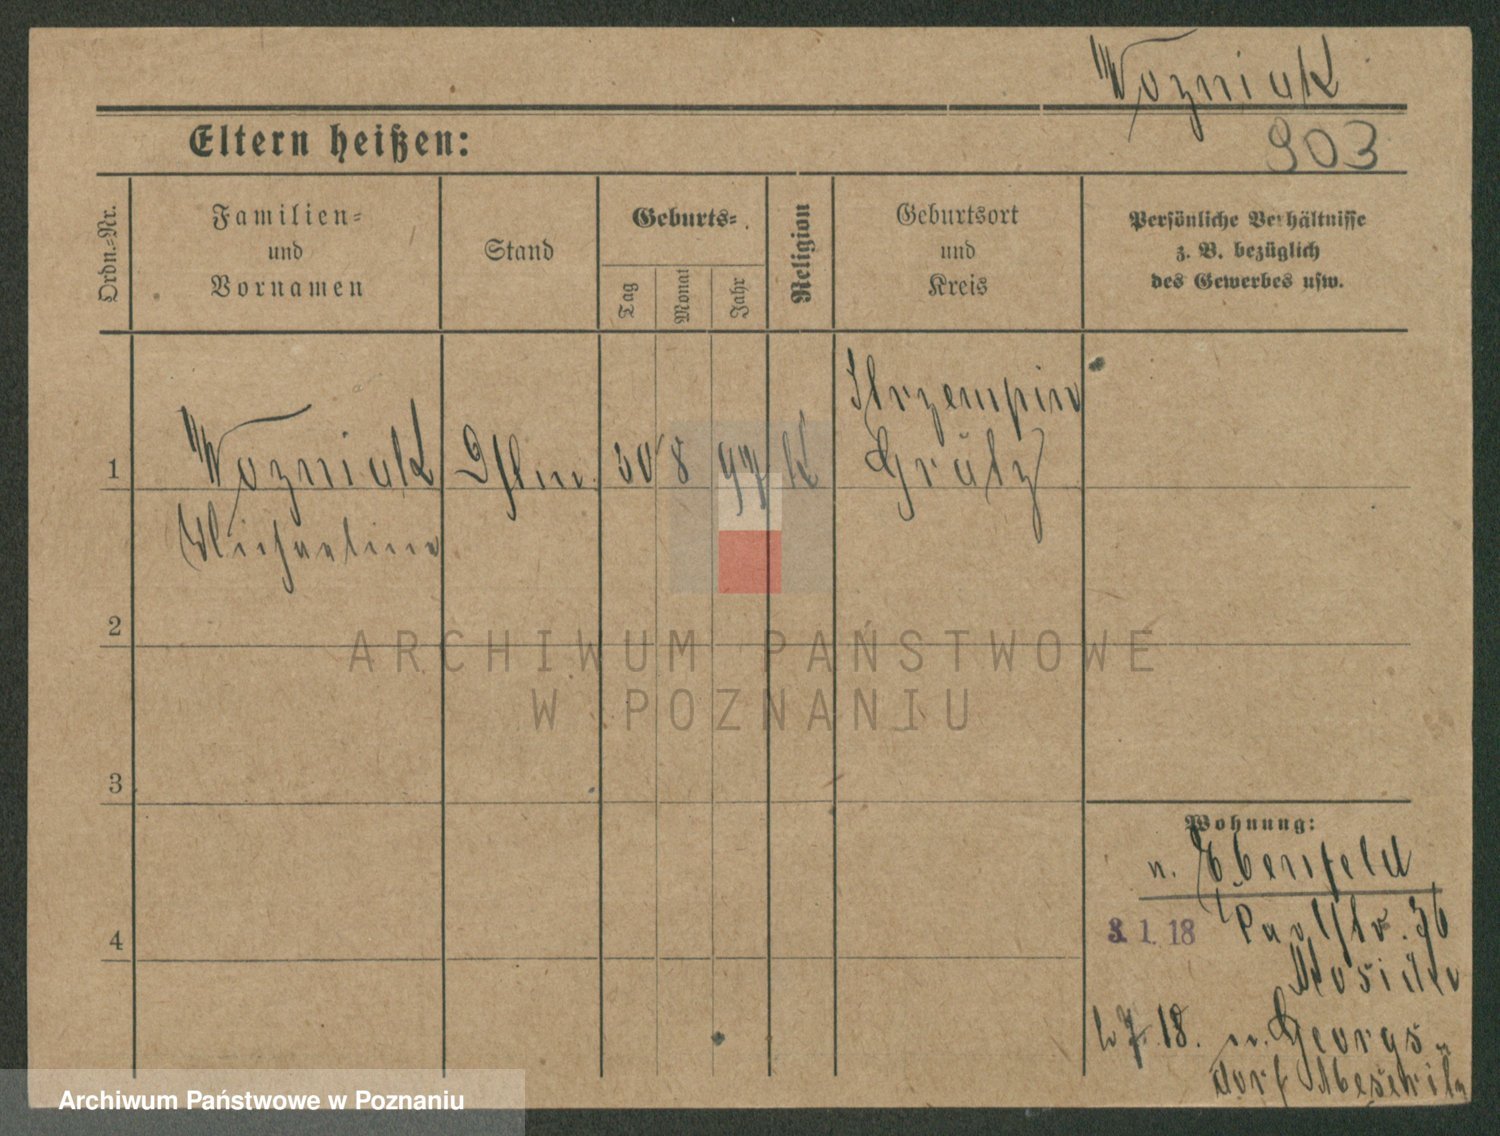 Wozniak
903
Eltern heißen:
Ordn.-Nr.
Familien-
und
Vornamen
Stand
Geburts-
Tag
Monat
Jahr
Religion
Geburtsort
und
Kreis
Persönliche Verhältnisse
z. B. bezüglich
des Gewerbes usw.
1
Wozniak
30 8 97 K
Grätz
2
ARCHIWUM PAŃSTWOWE
W POZNANIU
3
Wohnung:
n. Ebenfeld
3. 1. 18
36
4
7. 18. n. Georgs-
dorf
Archiwum Państwowe w Poznaniu